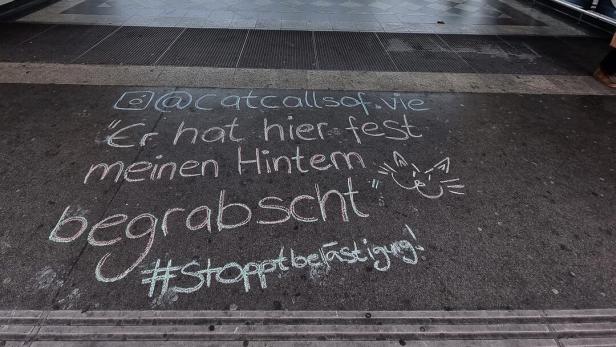 @catcallsof.vie
"Er hat hier fest
meinen Hintern
begrabscht"
#Stopptbelästigung!